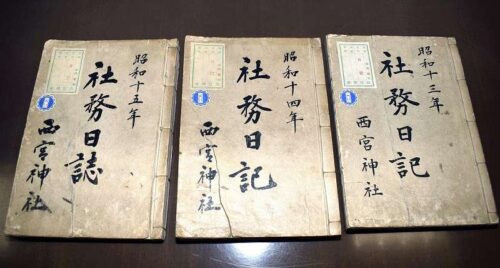 昭和十五年
社務日誌
西宮神社
昭和十四年
社務日記
西宮神社
昭和十三年
社務日記
西宮神社